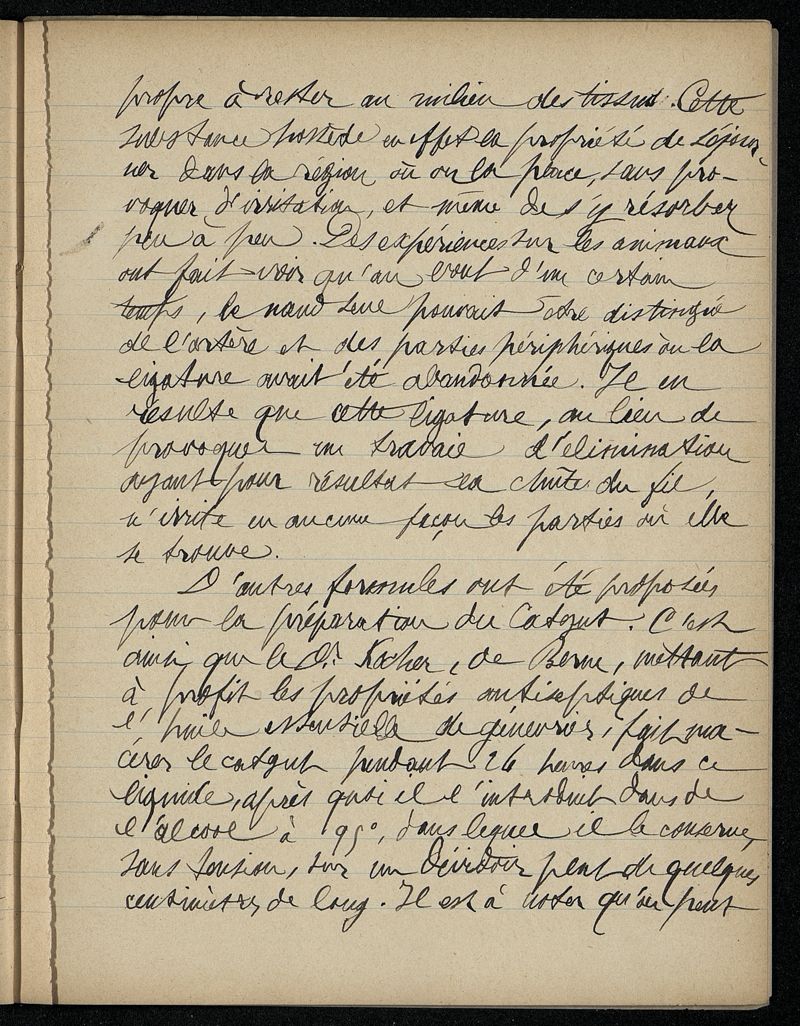 propre à rester au milieu des tissus. Cette
substance possède en effet la propriété de séjour-
ner dans la région où on la place, sans pro-
voquer d'irritation, et même de s'y résorber
peu à peu. Des expériences sur les animaux
ont fait voir qu'au bout d'un certain
temps, le nœud seul pouvait être distingué
de l'artère et des parties périphériques où la
ligature avait été abandonnée. Il en
résulte que cette ligature, au lieu de
provoquer un travail d'élimination
ayant pour résultat la chute du fil,
n'irrite en aucune façon les parties où elle
se trouve.
D'autres formules ont été proposées
pour la préparation du Catgut. C'est
ainsi que le Dr Kocher, de Berne, mettant
à profit les propriétés antiseptiques de
l'huile essentielle de génevrier, fait ma-
cérer le catgut pendant 26 heures dans ce
liquide, après quoi il l'introduit dans de
l'alcool à 95°, dans lequel il le conserve,
sans tension, sur un dévidoir plat de quelques
centimètres de long. Il est à noter qu'on peut